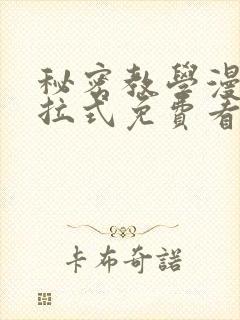 秘密教學漫
拉式免費看
卡布奇諾